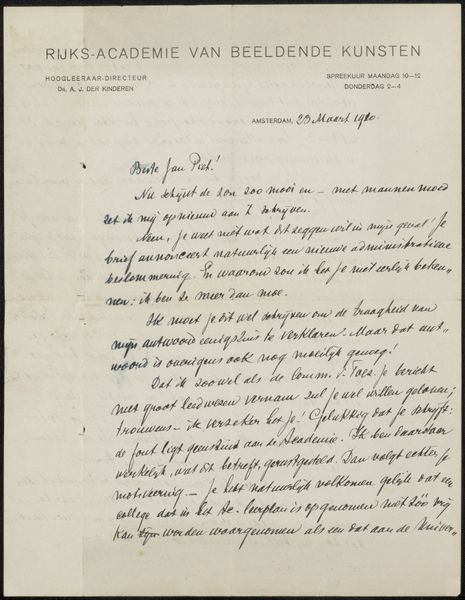 RIJKS-ACADEMIE VAN BEELDENDE KUNSTEN
HOOGLEERAAR-DIRECTEUR
DR. A. J. DER KINDEREN
SPREEKUUR MAANDAG 10–12
DONDERDAG 2–4
AMSTERDAM, 23 Maart 1920.
Beste Jan Piet!
Nu schijnt de zon zoo mooi en — met mannenmoed
zet ik mij opnieuw aan 't schrijven.
Neen, je weet niet wat dit zeggen wil in mijn geval! Je
brief annonceert natuurlijk een nieuwe administratieve
beslommering. En waarom zou ik het je niet eerlijk beken-
nen: ik ben ze meer dan moe.
Ik moet je dit wel schrijven om de traagheid van
mijn antwoord eenigszins te verklaren. Maar dat ant-
woord is overigens ook nog moeilijk genoeg!
Dat ik zoowel als de Comm. v. Toez. je bericht
met groot leedwezen vernam zul je wel willen gelooven;
trouwens — ik verzeker het je! Gelukkig dat je schrijft:
de fout ligt geenszins aan de Academie. Ik ben daardoor
werkelijk, wat dit betreft, gerustgesteld. Dan volgt echter je
motiveering. — Je hebt natuurlijk volkomen gelijk dat een
college dat in het Ac. leerplan is opgenomen niet zóó vrij
kan worden waargenomen als een dat aan de Univer-